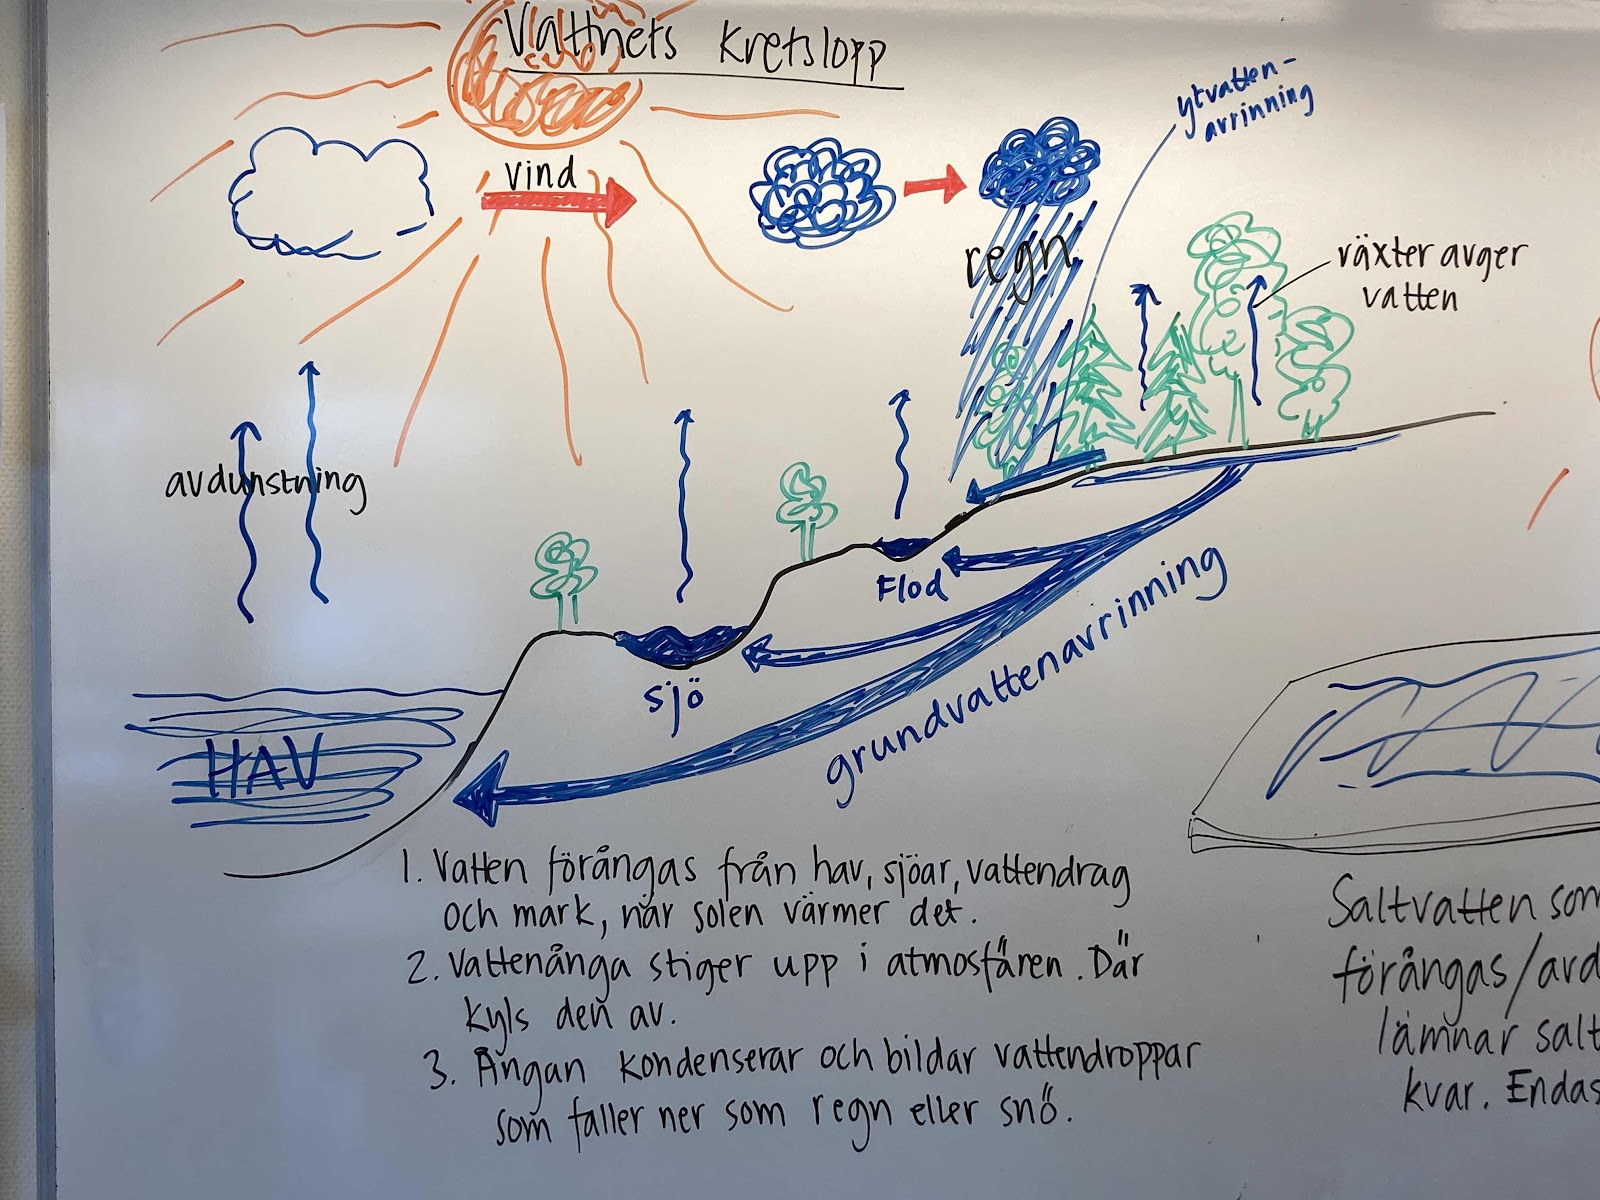 Vattnets kretslopp
ytvatten-
avrinning
vind
regn
växter avger
vatten
avdunstning
Flod
sjö
grundvattenavrinning
HAV
1. Vatten förångas från hav, sjöar, vattendrag
och mark, när solen värmer det.
2. Vattenånga stiger upp i atmosfären. Där
kyls den av.
3. Ångan kondenserar och bildar vattendroppar
som faller ner som regn eller snö.
Saltvatten som
förångas/avd
lämnar salt
kvar. Endas